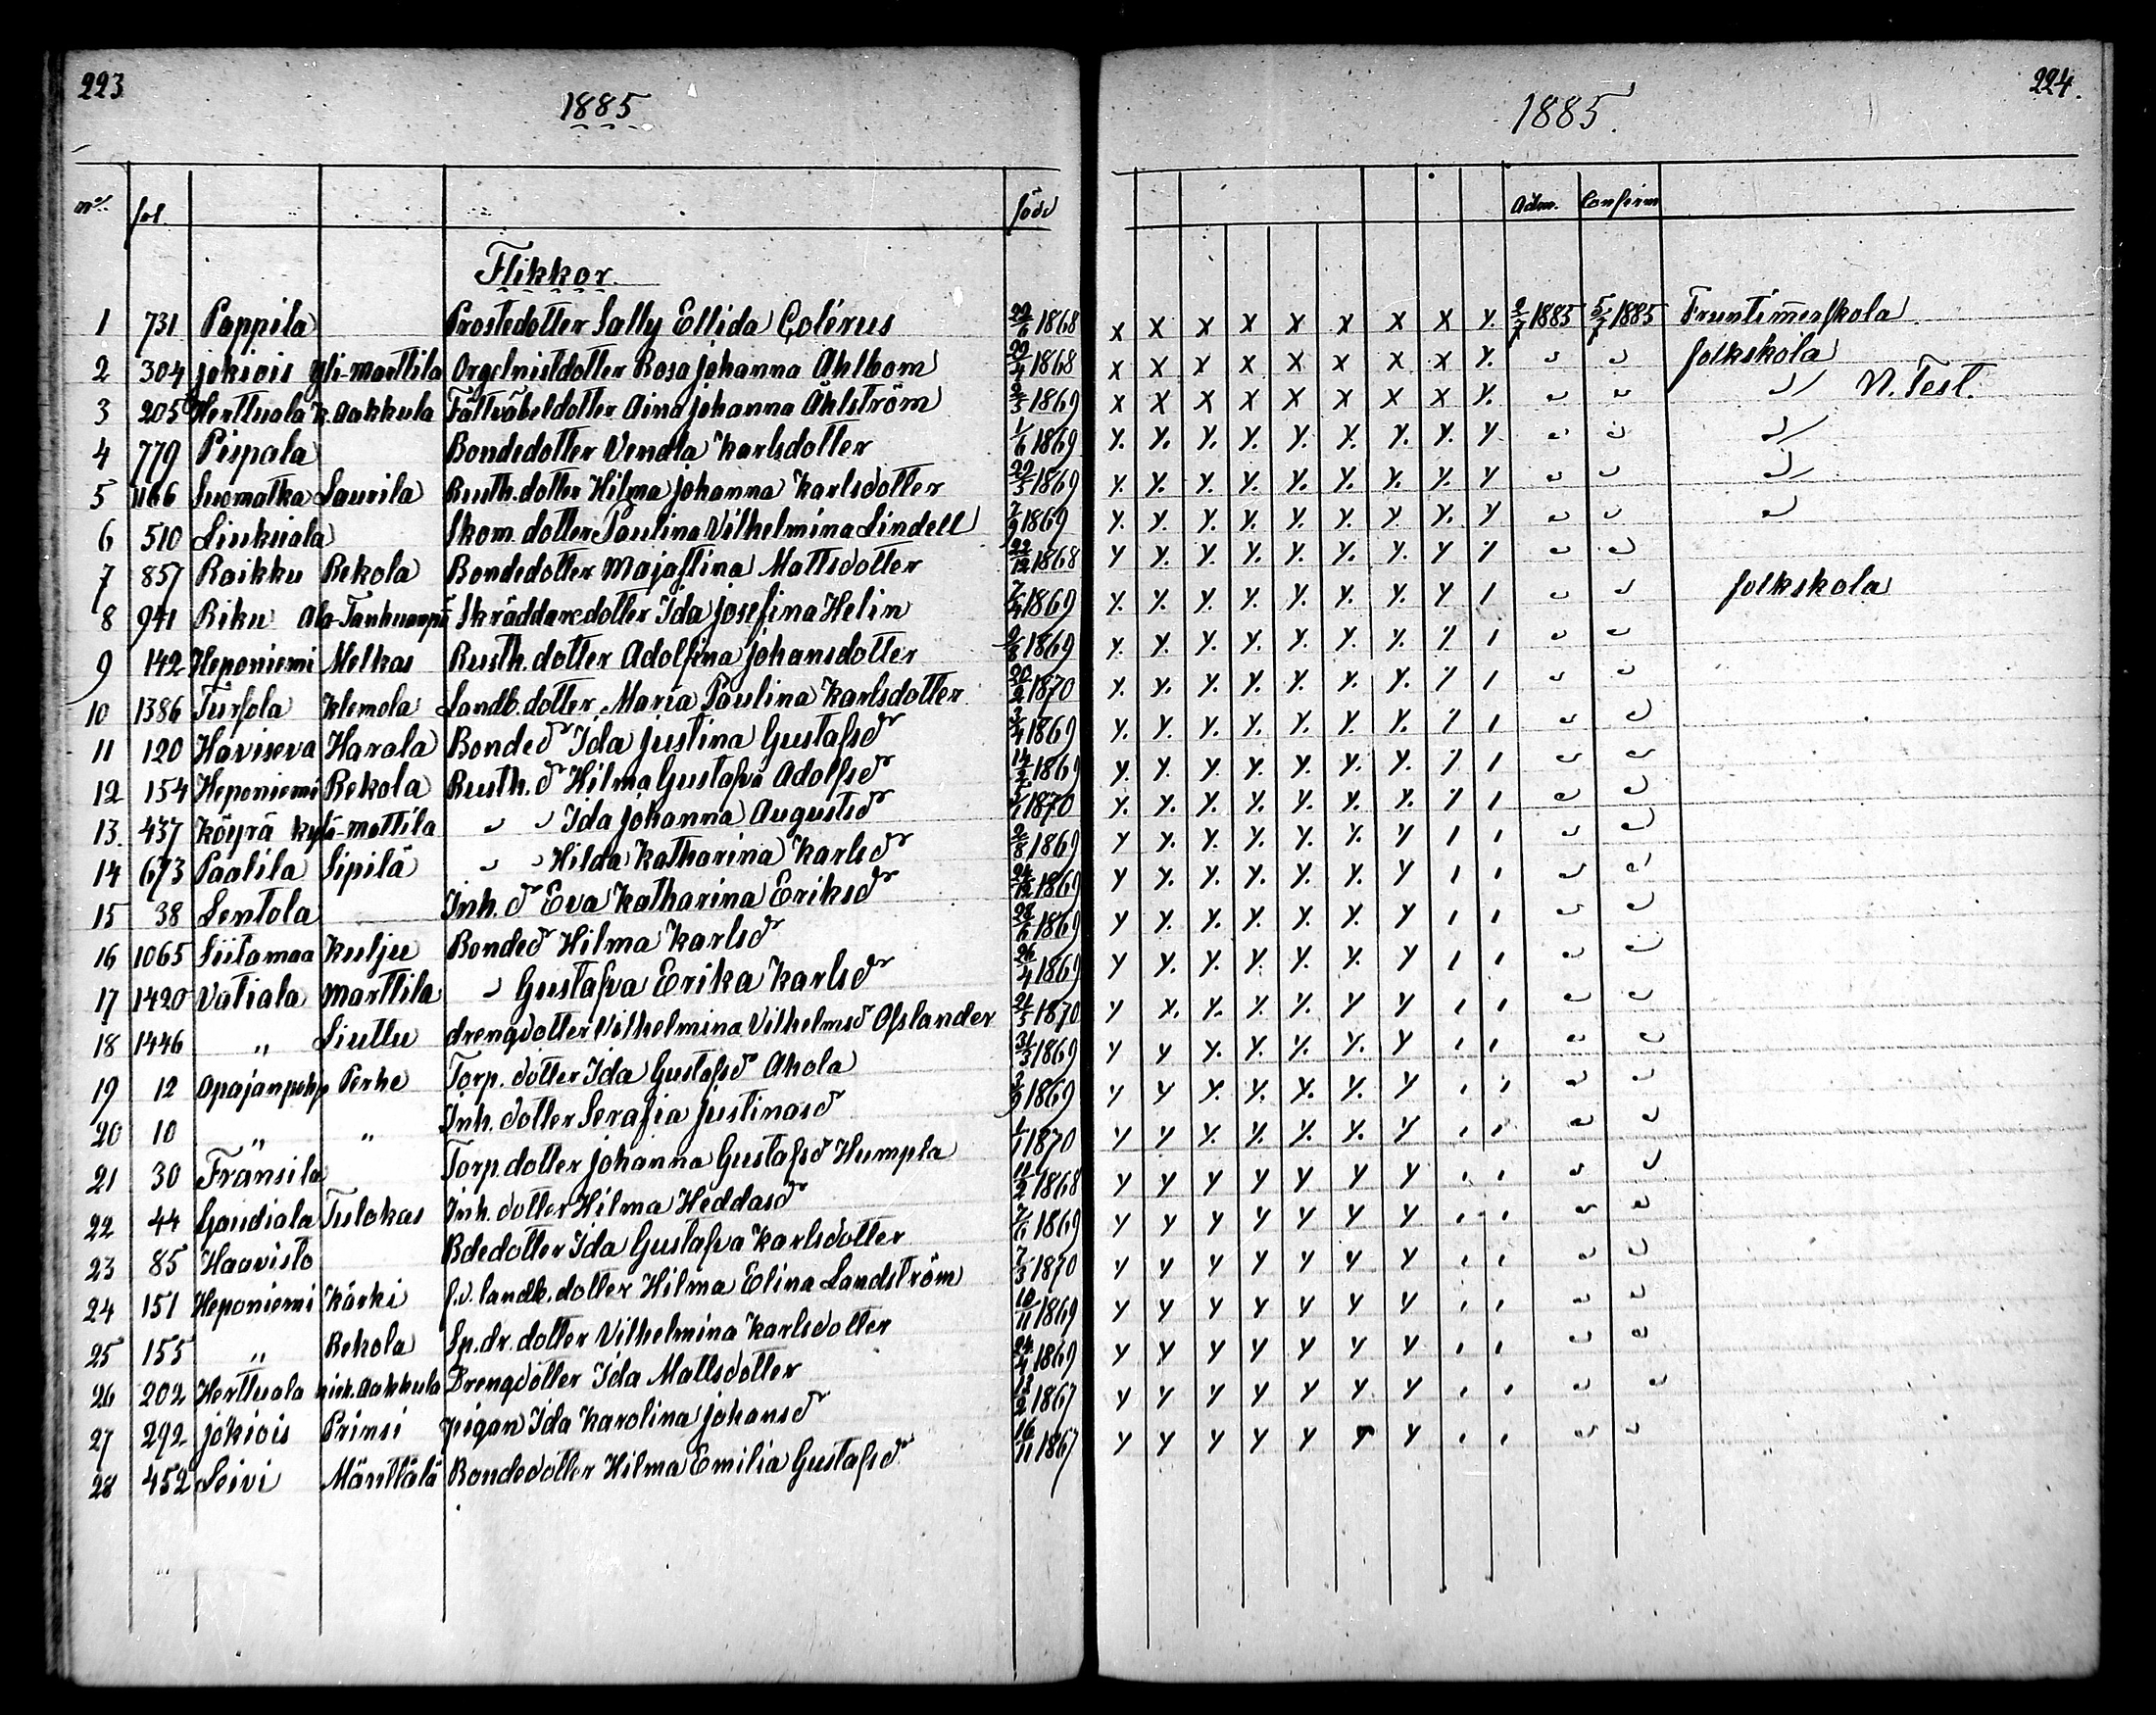 223
1885
No. fol. född
Flikkor.
1 731 Pappila Prostedotter Sally Ellida Colérus 22/6 1868
2 304 jokiois Yli-marttila Orgelnistdotter Rosa johanna Ahlbom 20/4 1868
3 205 Herttuala k. Aakkula Fältväbeldotter Aina johanna Åhlström 2/3 1869
4 779 Pispala Bondedotter Vendla Karlsdotter 1/6 1869
5 1166 Suomatka Laurila Rusth. dotter Hilma johanna Karlsdotter 29/5 1869
6 510 Liuksiala Skom. dotter Paulina Vilhelmina Lindell 7/9 1869
7 857 Raikku Rekola Bondedotter Majastina Mattsdotter 22/12 1868
8 941 Riku Ala-Tanhuanpä Skräddaredotter Ida josefina Helin 7/4 1869
9 142 Heponiemi Melkas Rusth. dotter Adolfina johansdotter 9/8 1869
10 1386 Tursola Klemola Landb. dotter Maria Paulina Karlsdotter 20/2 1870
11 120 Haviseva Harala Bonded Ida justina Gustafsd 3/4 1869
12 154 Heponiemi Rekola Rusth. d Hilma Gustafva Adolfsd 14/2 1869
13. 437 Köyrä kylä-mattila " " Ida johanna Augustsd 1870
14 673 Paalila Sipilä " " Hilda Katharina Karlsd 2/8 1869
15 38 Lentola Inh. d Eva Katharina Eriksd 24/12 1869
16 1065 Siitamaa Kulju Bonded Hilma Karlsd 28/6 1869
17 1420 Vatiala marttila " Gustafva Erika Karlsd 26/4 1869
18 1446 " Liuttu drengdotter Vilhelmina Vilhelmsd Oslander 21/5 1870
19 12 Opajanpohja Perhe Torp. dotter Ida Gustafsd Ahola 31/3 1869
20 10 " " Inh. dotter Serafia justinasd 3/9 1869
21 30 Fränsila Torp. dotter johanna Gustafsd Humpla 1/1 1870
22 44 Gaudiala Tulokas Inh. dotter Hilma Heddasd 11/2 1868
23 85 Haavisto Bdedotter Ida Gustafva Karlsdotter 7/6 1869
24 151 Heponiemi Kärki f.d. landb. dotter Hilma Elina Landström 7/3 1870
25 155 " Rekola Sp. dr. dotter Vilhelmina Karlsdotter 10/11 1869
26 202 Herttuala kirk. Aakkula Drengdotter Ida Mattsdotter 24/4 1869
27 292 jokiois Prinsi pigan Ida Karolina johansd 13/2 1867
28 452 Leivi Mänttälä Bondedotter Hilma Emilia Gustafsd 16/11 1867
224.
1885.
Adm. Confirm
2/7 1885 5/7 1885 Fruntimmerskola
" " folkskola
" " " N. Test.
" " "
" " "
" " "
" "
" " folkskola